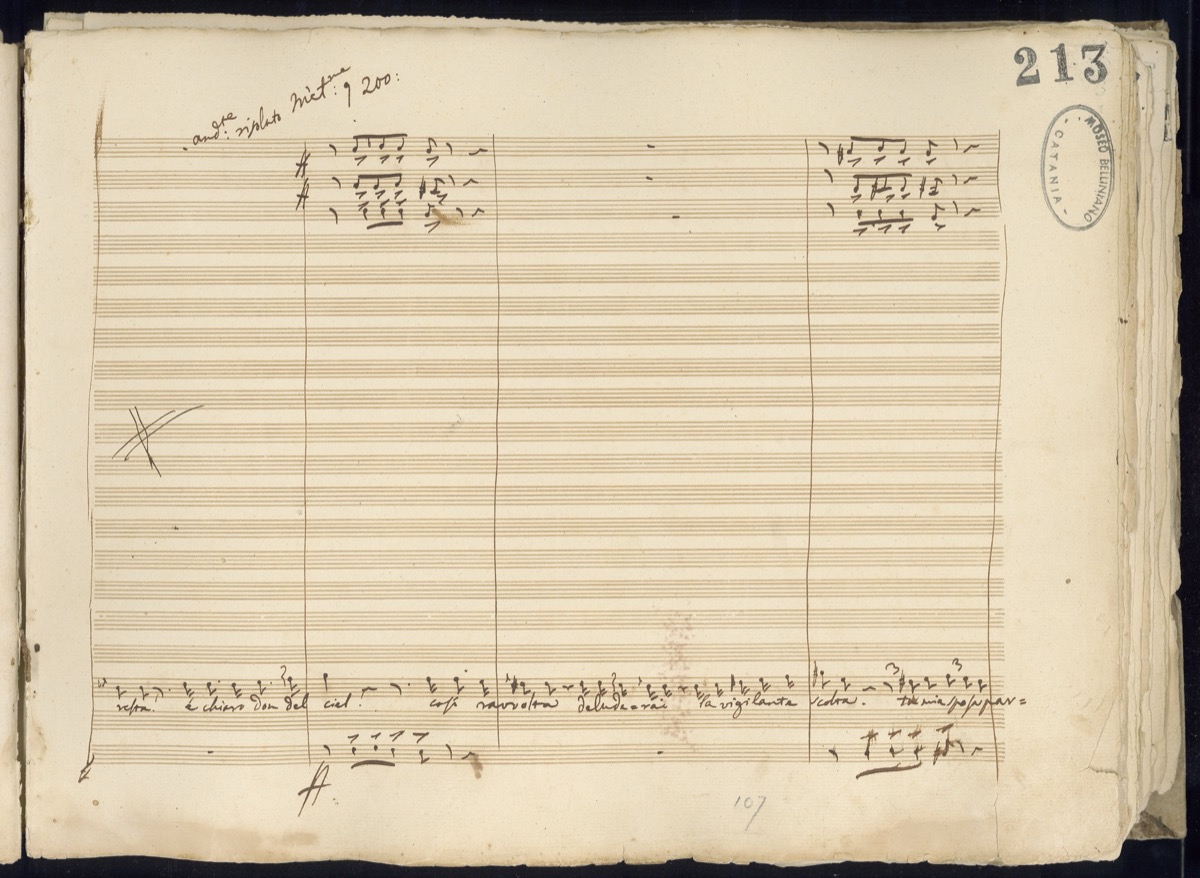 213
MUSEO BELLINIANO
- CATANIA -
and.te risoluto Met.me 200:
ff
ff
3 3 3
resta. è chiaro don del ciel. così ravvolta delude=rai la vigilante scolta. tu mia sposa par=
ff
107